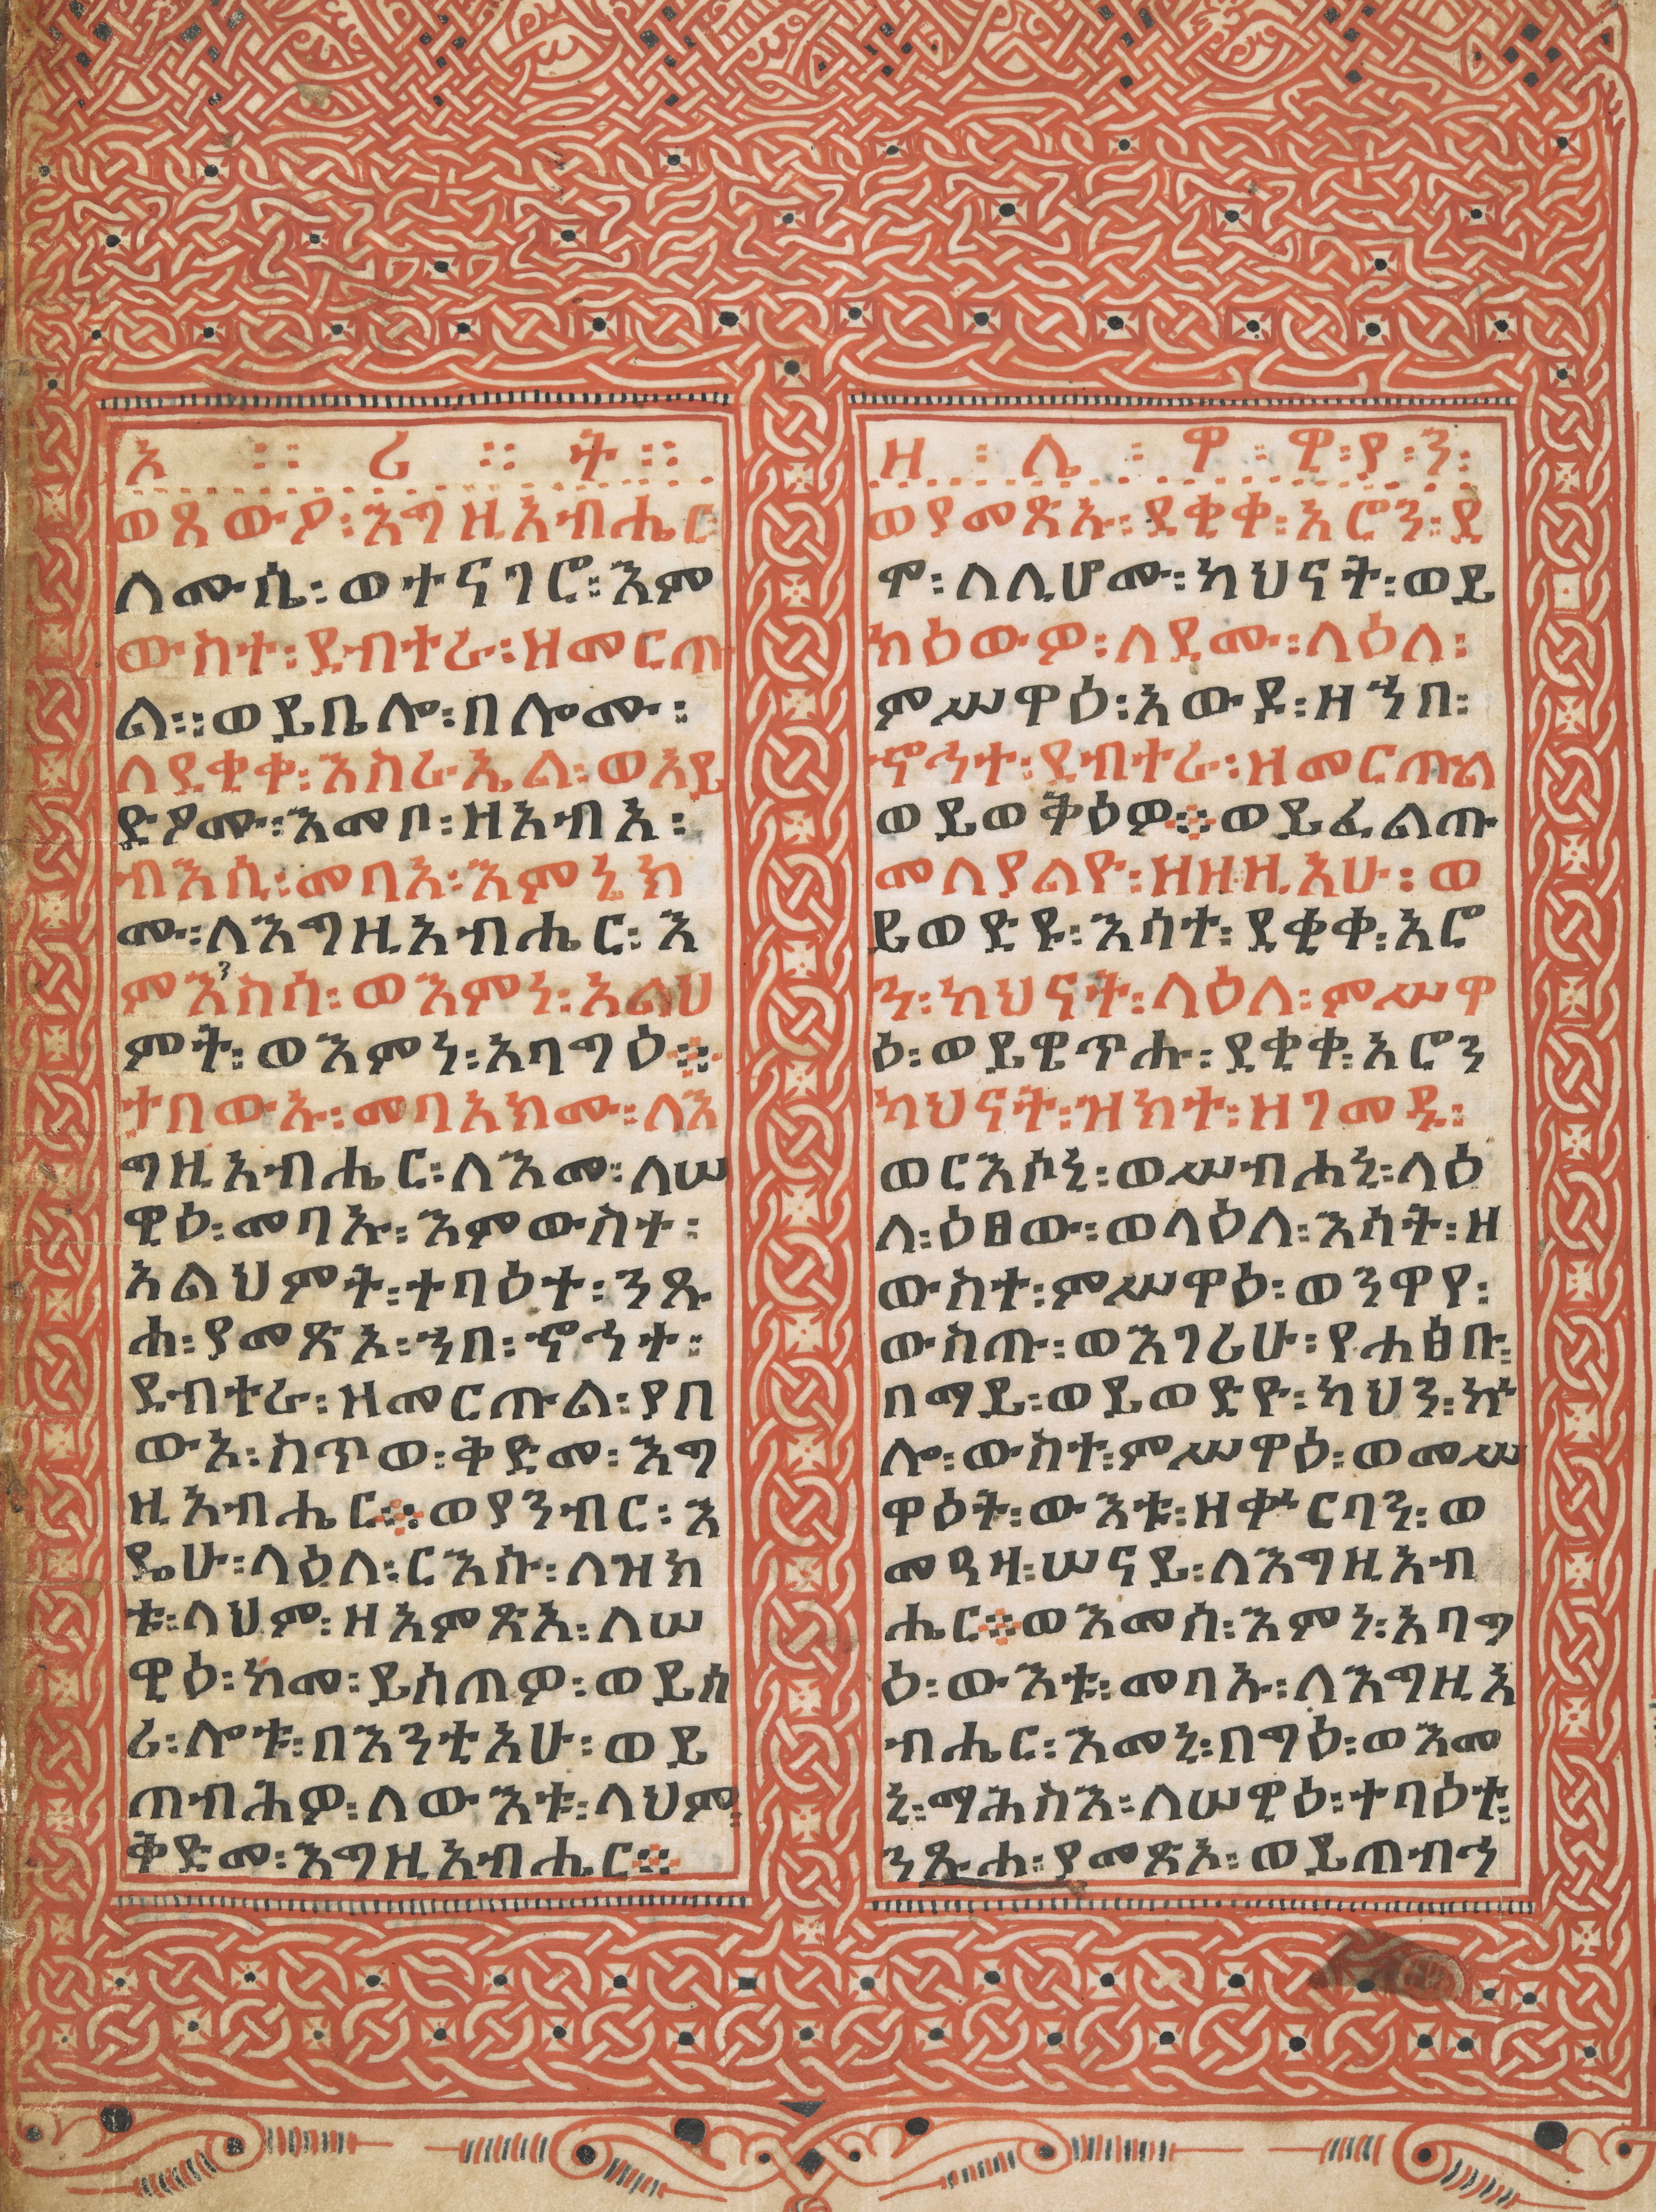 ኦ ፡ ፡ ሪ ፡ ፡ ት ፡ ፡
ወጸውዖ ፡ እግዚአብሔር ፡
ለሙሴ ፡ ወተናገሮ ፡ እም
ውስተ ፡ ደብተራ ፡ ዘመርጡ
ል ፡ ፡ ወይቤሎ ፡ በሎሙ ፡
ለደቂቀ ፡ እስራኤል ፡ ወአይ
ድዖሙ ፡ እመቦ ፡ ዘአብአ ፡
ብእሲ ፡ መባአ ፡ እምኔክ
ሙ ፡ ለእግዚአብሔር ፡ እ
ምእንስሳ ፡ ወእምነ ፡ አልህ
ምት ፡ ወእምነ ፡ አባግዕ ፨
ታበውኡ ፡ መባአክሙ ፡ ለእ
ግዚአብሔር ፡ ለእመ ፡ ለሠ
ዊዕ ፡ መባኡ ፡ እምውስተ ፡
አልህምት ፡ ተባዕተ ፡ ንጹ
ሐ ፡ ያመጽእ ፡ ኀበ ፡ ኆኅተ ፡
ደብተራ ፡ ዘመርጡል ፡ ያበ
ውእ ፡ ስጥወ ፡ ቅድመ ፡ እግ
ዚአብሔር ፨ ወያንብር ፡ እ
ዴሁ ፡ ላዕለ ፡ ርእሱ ፡ ለዝክ
ቱ ፡ ላህም ፡ ዘአምጽአ ፡ ለሠ
ዊዕ ፡ ከመ ፡ ይስጠዎ ፡ ወይስ
ሪ ፡ ሎቱ ፡ በእንቲአሁ ፡ ወይ
ጠብሕዎ ፡ ለውእቱ ፡ ላህም ፡
ቅድመ ፡ እግዚአብሔር ፨
ዘ ፡ ሌ ፡ ዋ ፡ ዊ ፡ ያ ፡ ን ፡
ወያመጽኡ ፡ ደቂቀ ፡ አሮን ፡ ደ
ሞ ፡ ለሊሆሙ ፡ ካህናት ፡ ወይ
ክዕውዎ ፡ ለደሙ ፡ ላዕለ ፡
ምሥዋዕ ፡ አውዶ ፡ ዘኀበ ፡
ኆኅተ ፡ ደብተራ ፡ ዘመርጡል
ወይወቅዕዎ ፨ ወይፈልጡ
መለያልዮ ፡ ዘዘዚአሁ ፡ ወ
ይወድዩ ፡ እሳተ ፡ ደቂቀ ፡ አሮ
ን ፡ ካህናት ፡ ላዕለ ፡ ምሥዋ
ዕ ፡ ወይዌጥሑ ፡ ደቂቀ ፡ አሮን
ካህናት ፡ ዝክተ ፡ ዘገመዱ ፡
ወርእሶኒ ፡ ወሥብሐኒ ፡ ላዕ
ለ ፡ ዕፀው ፡ ወላዕለ ፡ እሳት ፡ ዘ
ውስተ ፡ ምሥዋዕ ፡ ወንዋየ ፡
ውስጡ ፡ ወእገሪሁ ፡ የሐፅቡ ፡
በማይ ፡ ወይወድዮ ፡ ካህን ፡ ኵ
ሎ ፡ ውስተ ፡ ምሥዋዕ ፡ ወመሥ
ዋዕት ፡ ውእቱ ፡ ዘቍርባን ፡ ወ
መዓዛ ፡ ሠናይ ፡ ለእግዚአብ
ሔር ፨ ወእመሰ ፡ እምነ ፡ አባግ
ዕ ፡ ውእቱ ፡ መባኡ ፡ ለእግዚአ
ብሔር ፡ እመኒ ፡ በግዕ ፡ ወእመ
ኒ ፡ ማሕስእ ፡ ለሠዊዕ ፡ ተባዕተ ፡
ንጹሐ ፡ ያመጽእ ፡ ወይጠብኅ